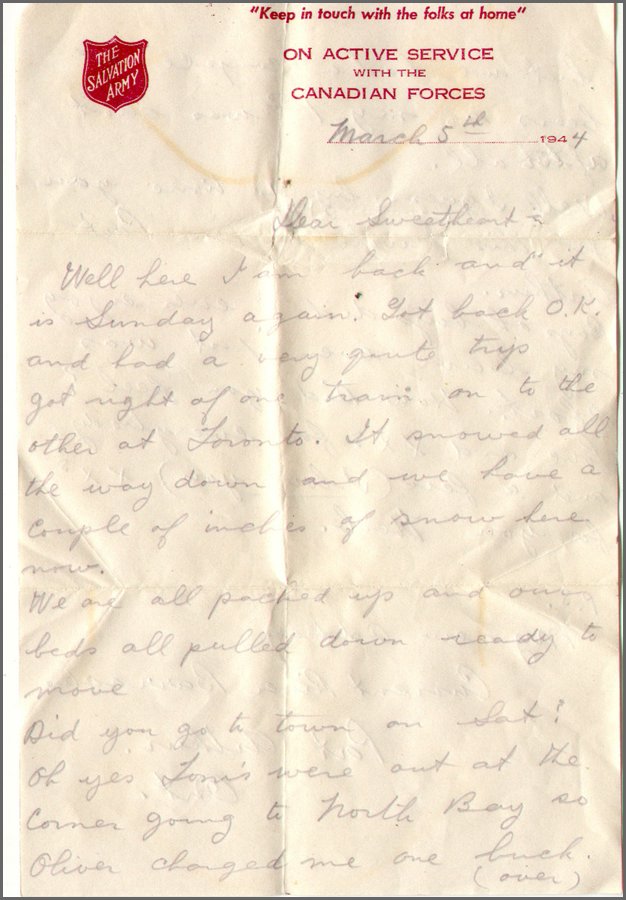 "Keep in touch with the folks at home"
THE
SALVATION
ARMY
ON ACTIVE SERVICE
WITH THE
CANADIAN FORCES
March 5th 1944
Dear Sweetheart:
Well here I am back and it
is Sunday again. Got back O.K.
and had a very quite trip
got right of one train on to the
other at Toronto. It snowed all
the way down and we have a
couple of inches of snow here
now.
We are all packed up and our
beds all pulled down ready to
move
Did you go to town on Sat?
Oh yes Tom's were out at the
corner going to North Bay so
Oliver charged me one buck.
(over)